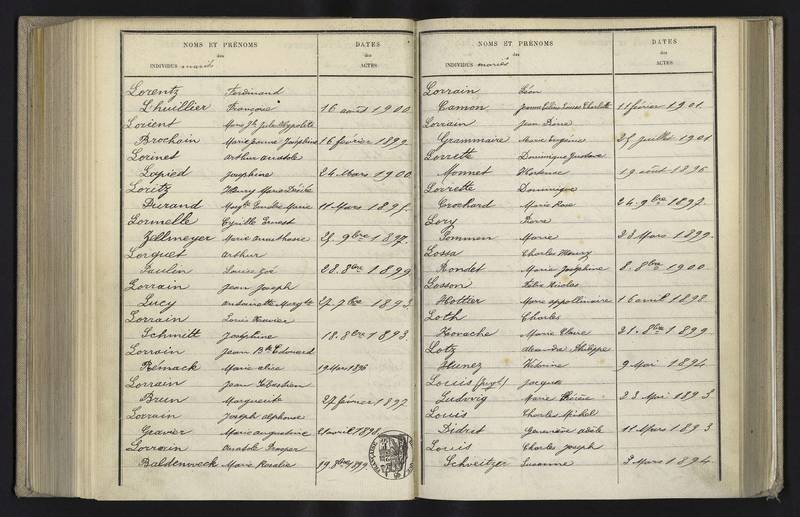 NOMS ET PRÉNOMS
des
INDIVIDUS mariés
DATES
des
ACTES
Lorentz Ferdinand
Lhuillier Françoise 16 août 1900
Lorient Marie Jh Jules Hyppolite
Brochain Marie Jeanne Joséphine 16 février 1899
Lorinet Arthur Anatole
Lapied Joséphine 24 Mars 1900
Loritz Henry Marie Désiré
Durand Marie 11 Mars 1895
Lormelle Cyrille Ernest
Zellmeyer Marie 25 9bre 1897
Lorquet Arthur
Paulin Louise Zoé 28 8bre 1899
Lorrain Jean Joseph
Lucy Antoinette Margte 27 7bre 1893
Lorrain Louis Xavier
Schmitt Joséphine 18 8bre 1893
Lorrain Jean Bte Edouard
Rémack Marie Alice 19 Mars 1896
Lorrain Jean Sébastien
Brun Marguerite 27 février 1897
Lorrain Joseph Alphonse
Gravier Marie Augustine 21 avril 1898
Lorrain Anatole Prosper
Baldenweck Marie Rosalie 19 8bre 1899
NOMS ET PRÉNOMS
des
INDIVIDUS mariés
DATES
des
ACTES
Lorrain Léon
Camon Jeanne Louise Charlotte 11 février 1901
Lorrain Jean Pierre
Grammaire Marie Eugénie 25 juillet 1901
Lorrette Dominique Gustave
Monnet Hortense 19 août 1896
Lorrette Dominique
Crochard Marie Rose 24 9bre 1898
Lory Pierre
Pommon Marie 23 Mars 1899
Lossa Charles Maury
Rondet Marie Joséphine 8 8bre 1900
Losson Félix Nicolas
Hottier Marie Appollinaire 16 avril 1898
Loth Charles
Horrache Marie Claire 21 8bre 1899
Lotz Philippe
Hunez Victorine 9 Mai 1894
Louis Jacques
Ludwig Marie Thérèse 23 Mai 1893
Louis Charles Michel
Didrit Geneviève Adèle 11 Mars 1893
Louis Charles Joseph
Schveitzer Suzanne 3 Mars 1894